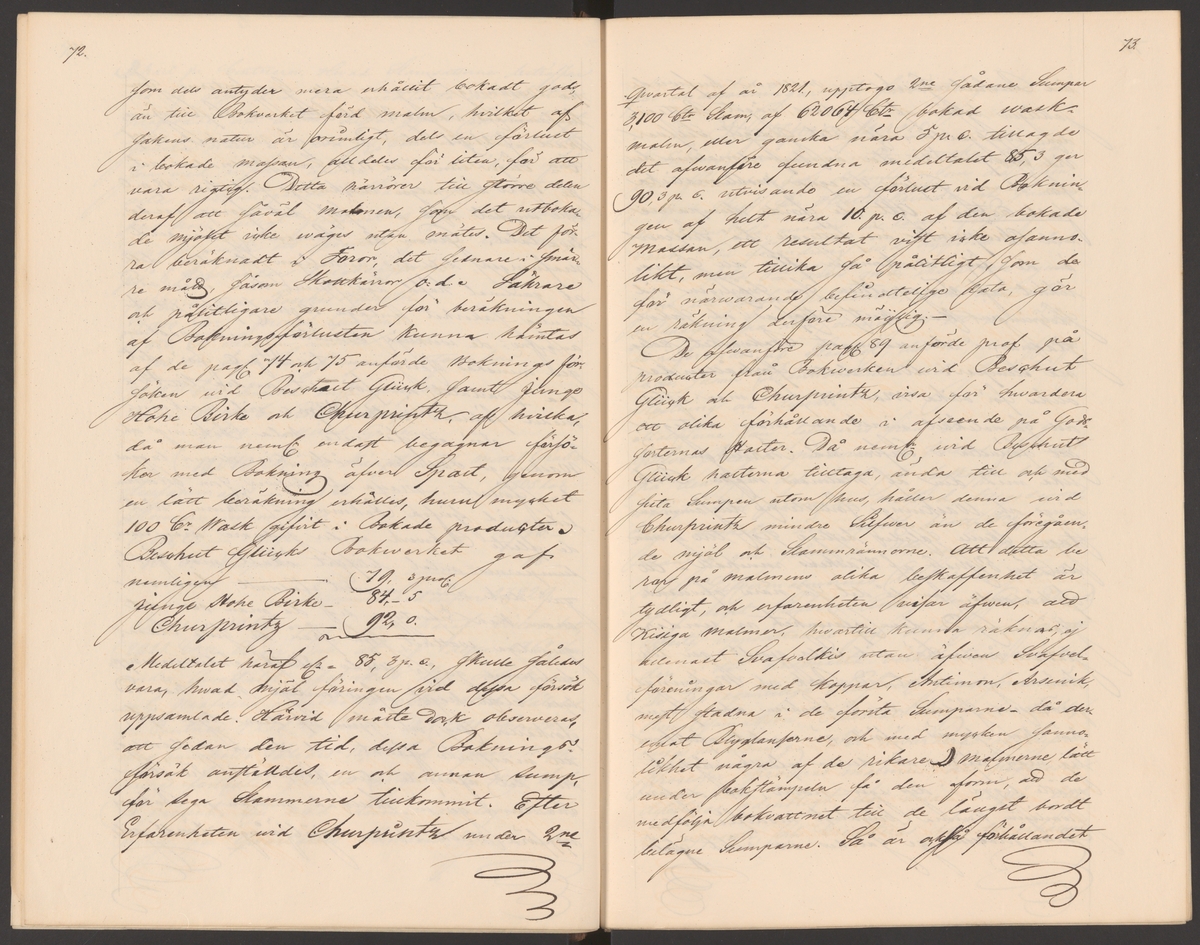 72.
som dels antyder mera erhållit bokadt gods
än till Bokverket förd malm, hvilket af
sakens natur är orimligt, dels en förlust
i bokade massan, alldeles för liten, för att
vara rigtig. Detta härrörer till större delen
deraf att såväl malmen, som det utboka-
de mjölet icke wäges utan mätes. Det för-
ra beräknadt i Foror, det sednare i smär-
re mått, såsom Skottkärror o: d. Säkrare
och pålitligare grunder för beräkningen
af Boknings förlusten kunna hämtas
af de pag 74 och 75 anförde Boknings för-
söken vid Beschert Glück, samt Junge
Hohe Birke och Churprintz, af hvilka,
då man neml endast begagnar försö-
ker med Bokning älven Spalt, genom
en lätt beräkning erhålles, huru mycket
100 Ctr Wask gifvit i Bokade producter.
Beschert Glücks Bokwerket gaf
nemligen — 79, 3 proC
junge Hohe Birke — 84, 5
Churprintz — 92, 0.
Medeltalet häraf = 85, 3 p. c., skulle således
vara, hvad mjöl föringen vid dessa försök
uppsamlade. Härvid måste dock observeras,
att sedan den tid, dessa Boknings-
försök anställdes, en och annan Sump,
för sega Slammerne tillkommit. Efter
Erfarenheten vid Churprintz under 2ne
73.
Qvartal af år 1821, upptogo 2ne sådane Sumper
3,100 Ctr Slam, af 62064 Ctr bokad wask-
malm, eller ganska nära 5 p. c. tillagde
det ofwanföre fundna medeltalet 85,3 ger
90,3 p. c. utvisande en förlust vid Boknin-
gen af helt nära 10. p. c. af den bokade
Massan, ett resultat visst icke osanno-
likt, men tillika så pålitligt, som de
för närwarande befindtelige data, gör
en räkning derföre möjlig. —
De ofwanföre pag 89 anförde prof på
producter från Bokwerken vid Beschert
Glück och Churprintz, visa för hvardera
ett olika förhållande i afseende på Gods
sorternas Halter. Då neml vid Beschert
Glück halterna tilltaga, ända till och med
sista Sumpen utom hus, håller denna vid
Churprintz mindre Silfwer än de föregåen-
de mjöl och Slammrännorne. Att detta be
ror på malmens olika beskaffenhet är
tydligt, och erfarenheten visar äfwen, att
Kisiga malmer, hwartill kunna räknas, ej
allenast Svafvelkis utan äfwen Svafvel-
föreningar med Koppar, Antimon, Arsenik,
mest stadna i de första Sumparne — då der-
emot Blyglanserne, och med mycken sanno-
likhet några af de rikare malmerne lätt
under bokstämpeln få den form, att de
medfölja bokvattnet till de längst bordt
belägne Sumparne. Så är också förhållandet